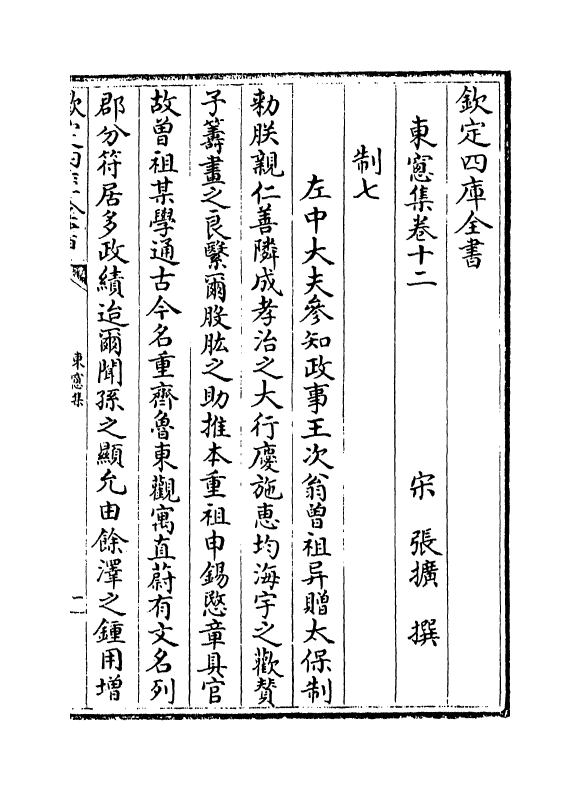 欽定四庫全書
東窻集卷十二
宋 張擴 撰
制七
左中大夫參知政事王次翁曽祖异贈太保制
勅朕親仁善隣成孝治之大行慶施恵均海宇之歡賛
子籌畫之良繄爾股肱之助推本重祖申錫愍章具官
故曽祖某學通古今名重齊魯東觀寓直蔚有文名列
郡分符居多政績迨爾聞孫之顯允由餘澤之鍾用増
東窻集